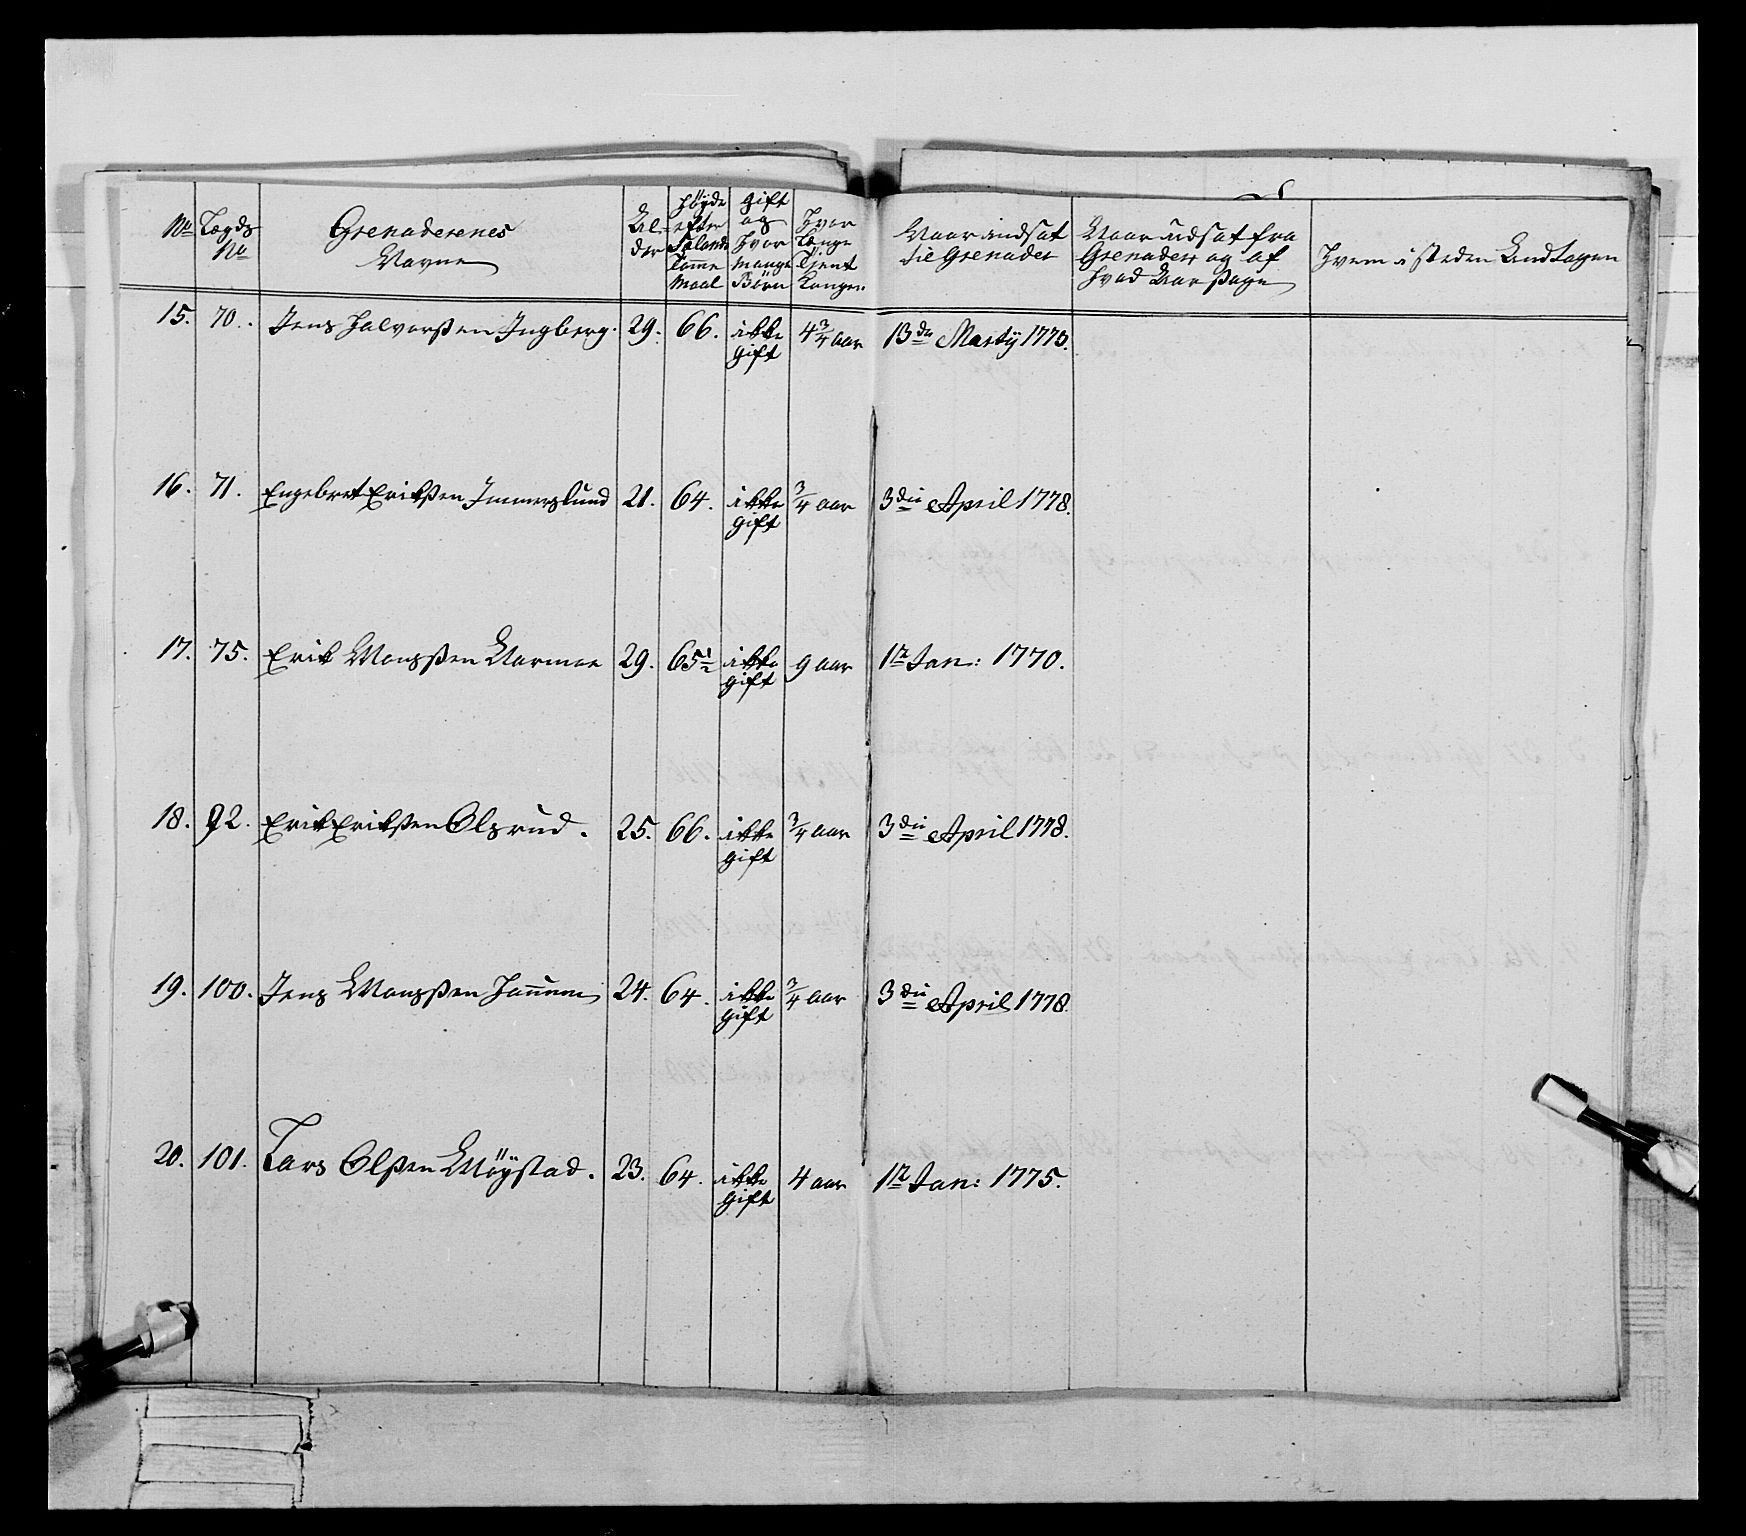 No
Lægds
No
Grenaderenes
Navne
Al-
der
Høyde
efter
Sælands
Tomme
Maal
gift
og
Hvor
mange
Børn
Hvor
Længe
Tjent
Kongen
Naar indsat
til Grenader
Naar udsat fra
Grenader og af
hvad Aarsage
Hvem i steden Andtagen
15. 70. Jens Halvorsen Ingberg. 29. 66. ikke 4 3/4 aar 13de Martÿ 1773.
gift
16. 71. Engebret Eriksen Immerslund 21. 64. ikke 3/4 aar 3die April 1778.
gift
17. 75. Erik Monssen 29. 65 1/2 ikke 9 aar 1te Jan: 1770.
gift
18. 92. Erik Eriksen Olsrud. 25. 66. ikke 3/4 aar 3die April 1778.
gift
19. 100. Jens Monssen 24. 64. ikke 3/4 aar 3die April 1778.
gift
20. 101. Lars Olsen Møÿstad. 23. 64. ikke 4 aar 1te Jan: 1775.
gift